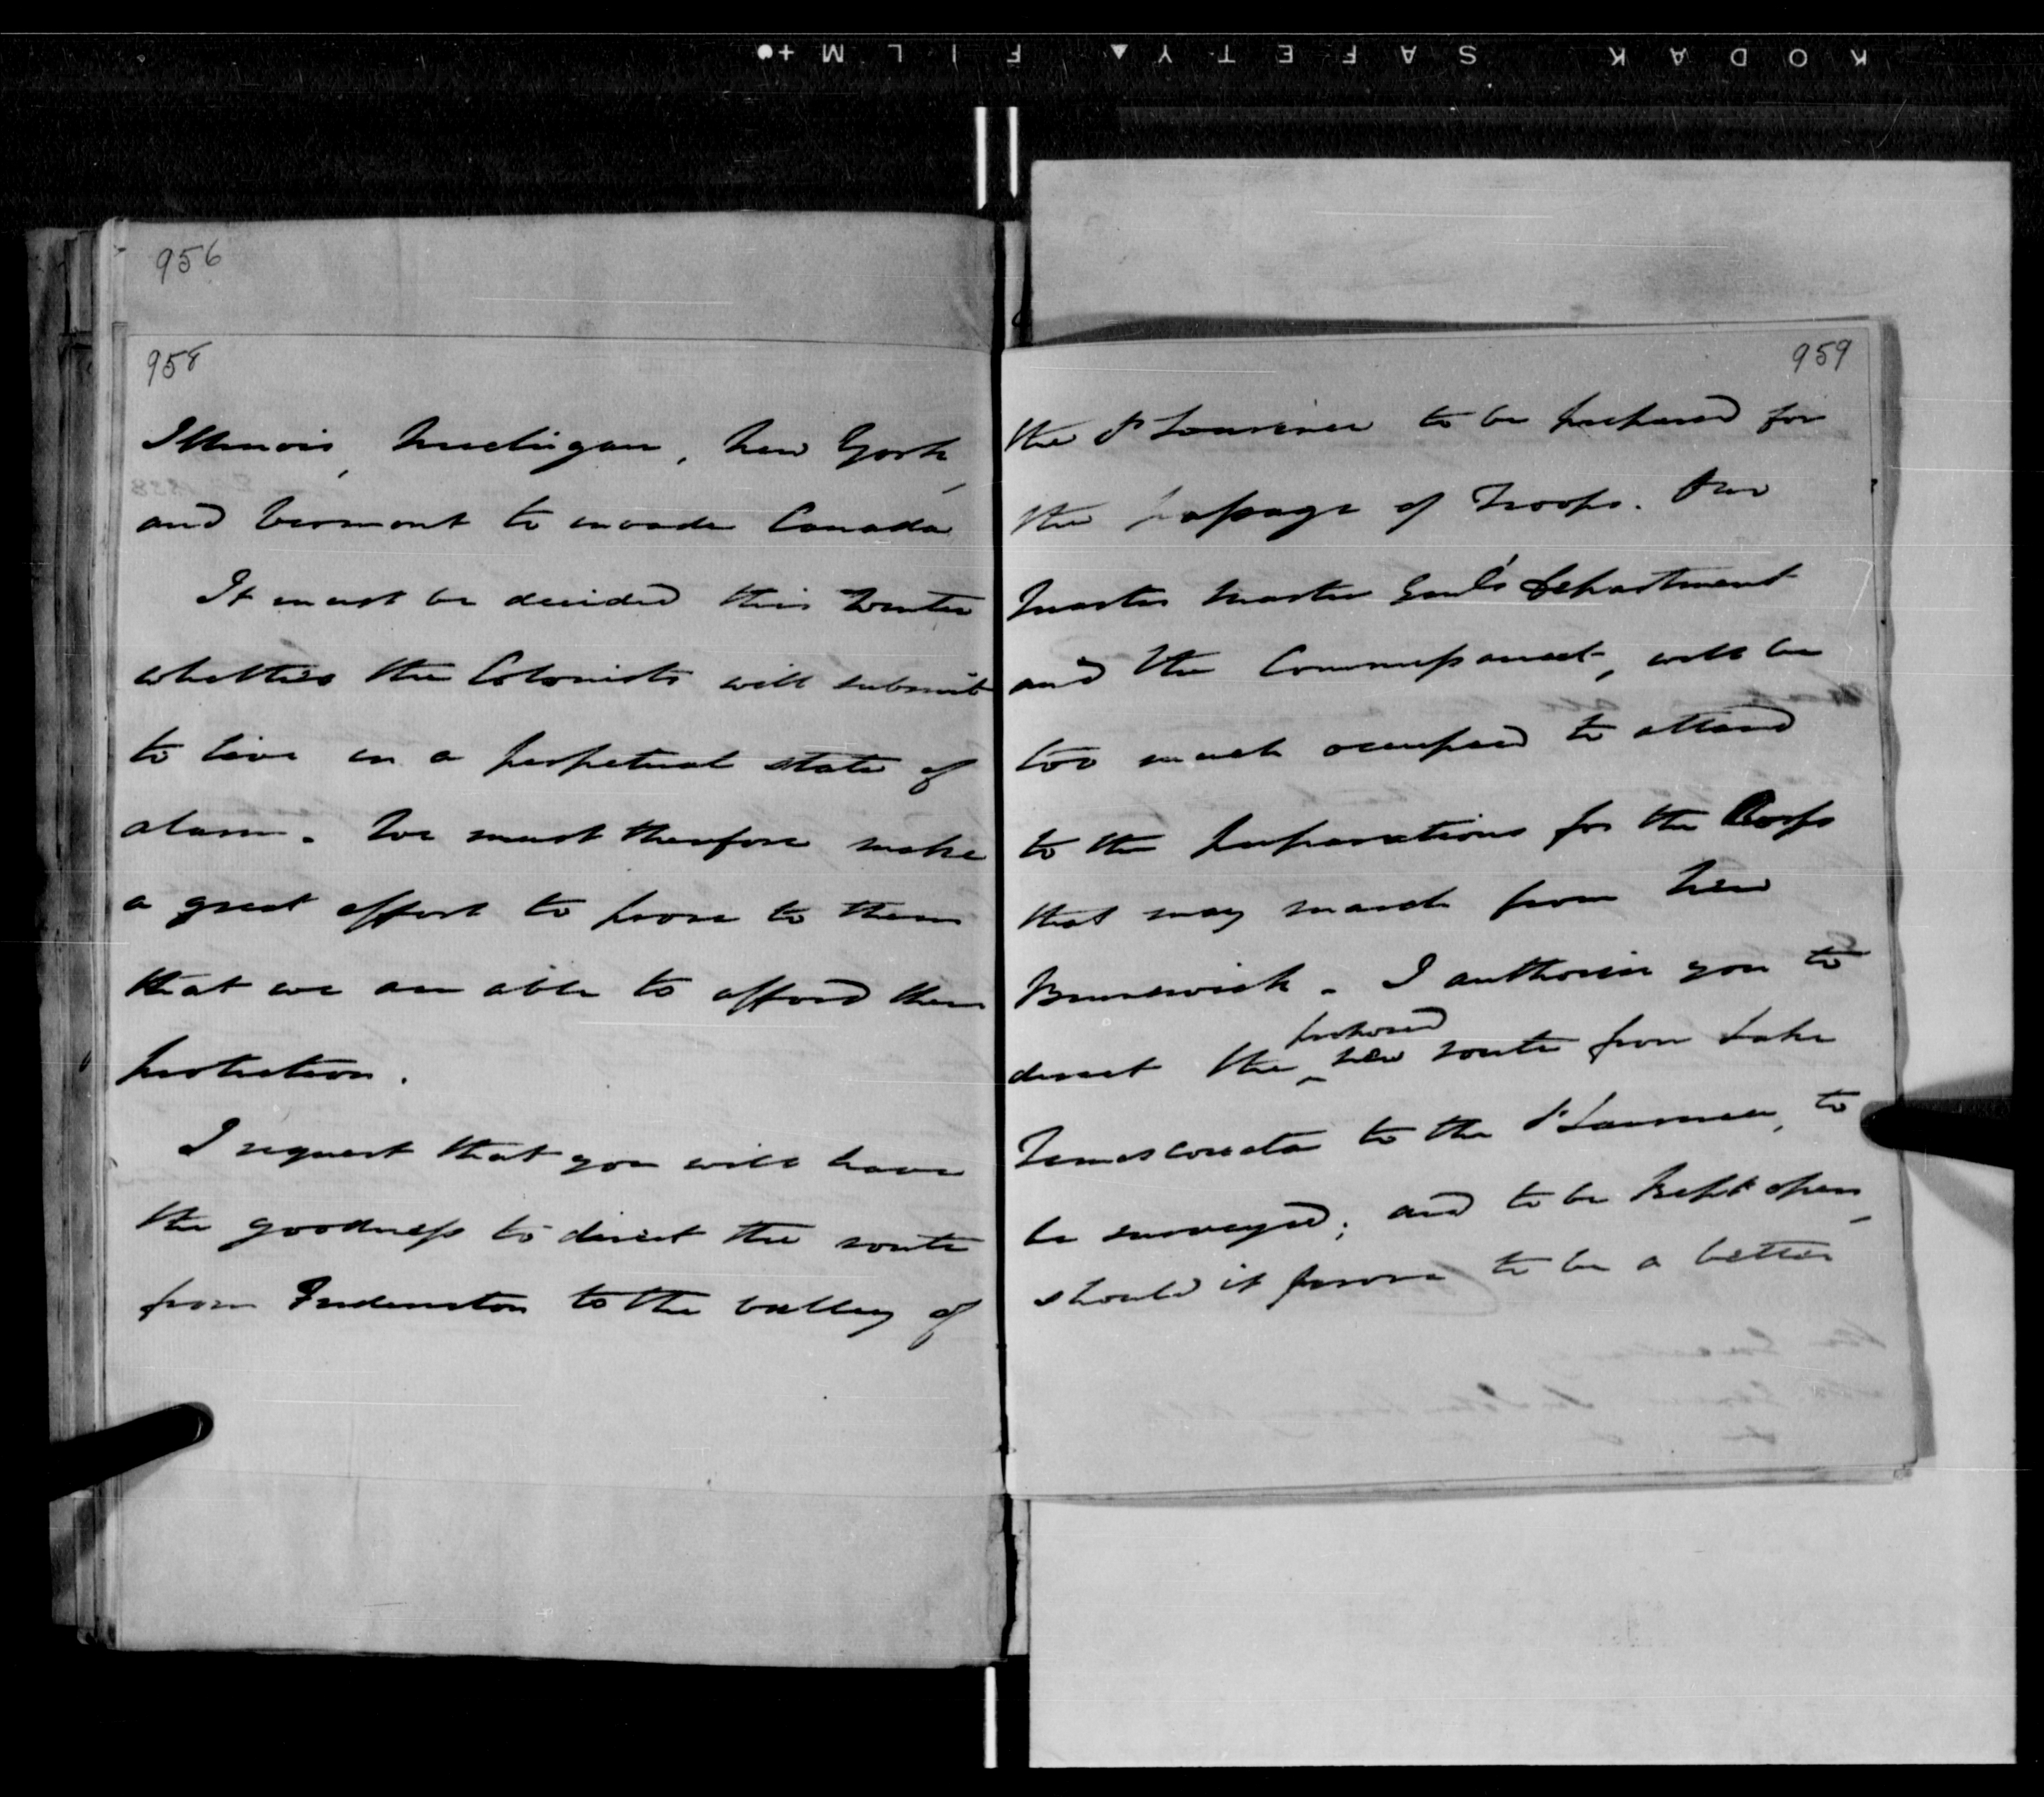 KODAK SAFETY FILM
956
958
Illinois, Michigan, New York,
and Vermont to invade Canada
It must be decided this Winter
whether the Colonists will submit
to live in a perpetual state of
alarm. We must therefore make
a great effort to prove to them
that we are able to afford them
protection.
I request that you will have
the goodness to direct the route
from Fredericton to the valley of
959
the St Lawrence to be prepared for
the passage of Troops. Our
Quarter Master Genl's Department
and the Commissariat, will be
too much occupied to attend
to the preparations for the Corps
that may march from New
Brunswick. I authorise you to
proposed
direct the new route from Lake
Temiscouata to the St Lawrence, to
be surveyed; and to be kept open,
should it prove to be a better